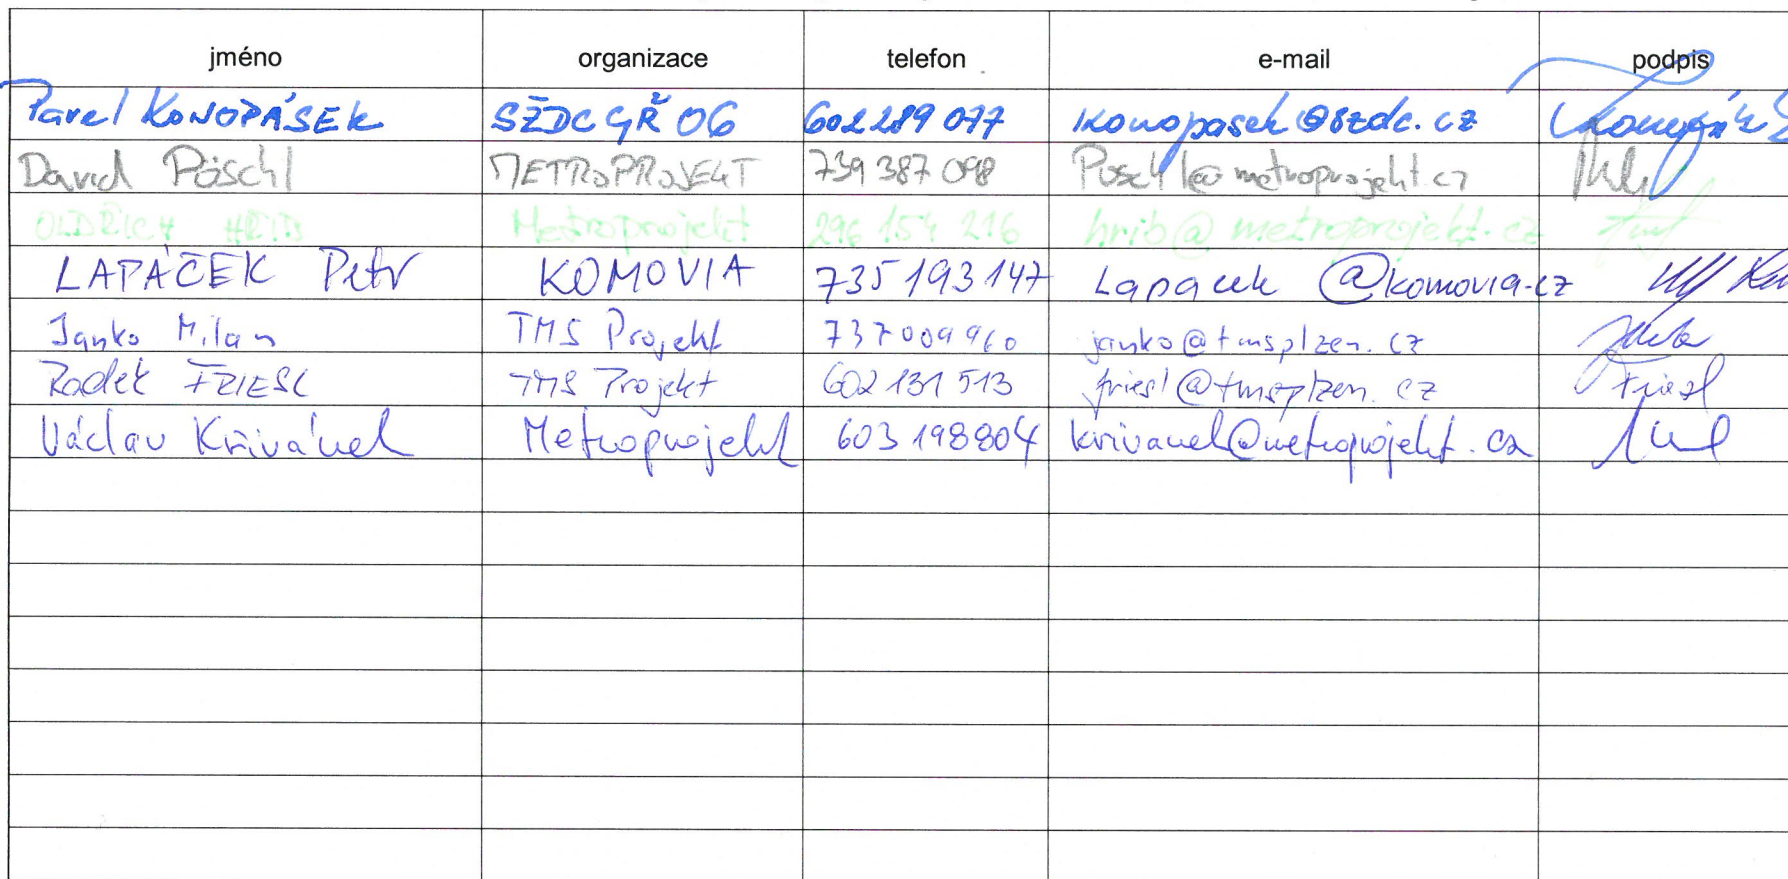 jméno organizace telefon e-mail podpis
Pavel KONOPÁSEK SŽDC GŘ O6 602 289 077 konopasek@szdc.cz Konopásek
David Pöschl METROPROJEKT 739 387 098 Poschl@metroprojekt.cz
OLDŘICH HŘIB Metroprojekt 296 154 216 hrib@metroprojekt.cz
LAPÁČEK Petr KOMOVIA 735 193 147 Lapacek @komovia.cz
Janko Milan TMS Projekt 737 009 960 janko@tmsplzen.cz
Radek FRIESL TMS Projekt 602 131 513 friesl@tmsplzen.cz Friesl
Václav Křivánek Metroprojekt 603 198804 krivanek@metroprojekt.cz